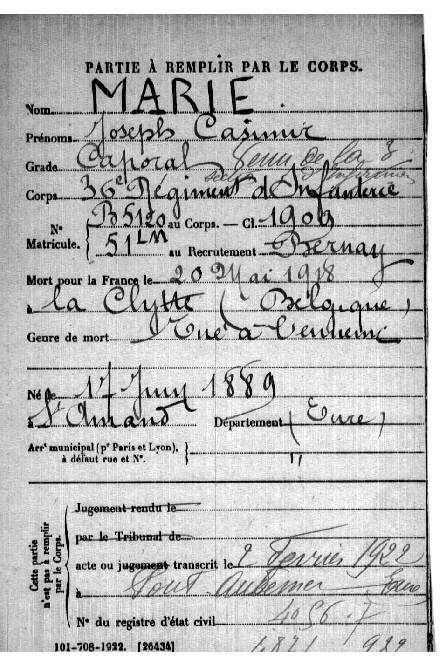 PARTIE À REMPLIR PAR LE CORPS.
Nom MARIE.
Prénoms Joseph Casimir
Grade Caporal Venu de la 3
Corps 36e Régiment d'Infanterie
N° Matricule. { B5120 au Corps. — Cl. 1909
51LM au Recrutement Bernay
Mort pour la France le 20 Mai 1918
à la Clytte (Belgique)
Genre de mort Tué à l'ennemi
Né le 17 Juin 1889
à St Amand Département (Eure)
Arrt municipal (pr Paris et Lyon), à défaut rue et N°. } "
Cette partie n'est pas à remplir par le Corps.
Jugement rendu le
par le Tribunal de
acte ou jugement transcrit le 2 Février 1922
à Pont Audemer Eure
N° du registre d'état civil
101-708-1922. [26434]